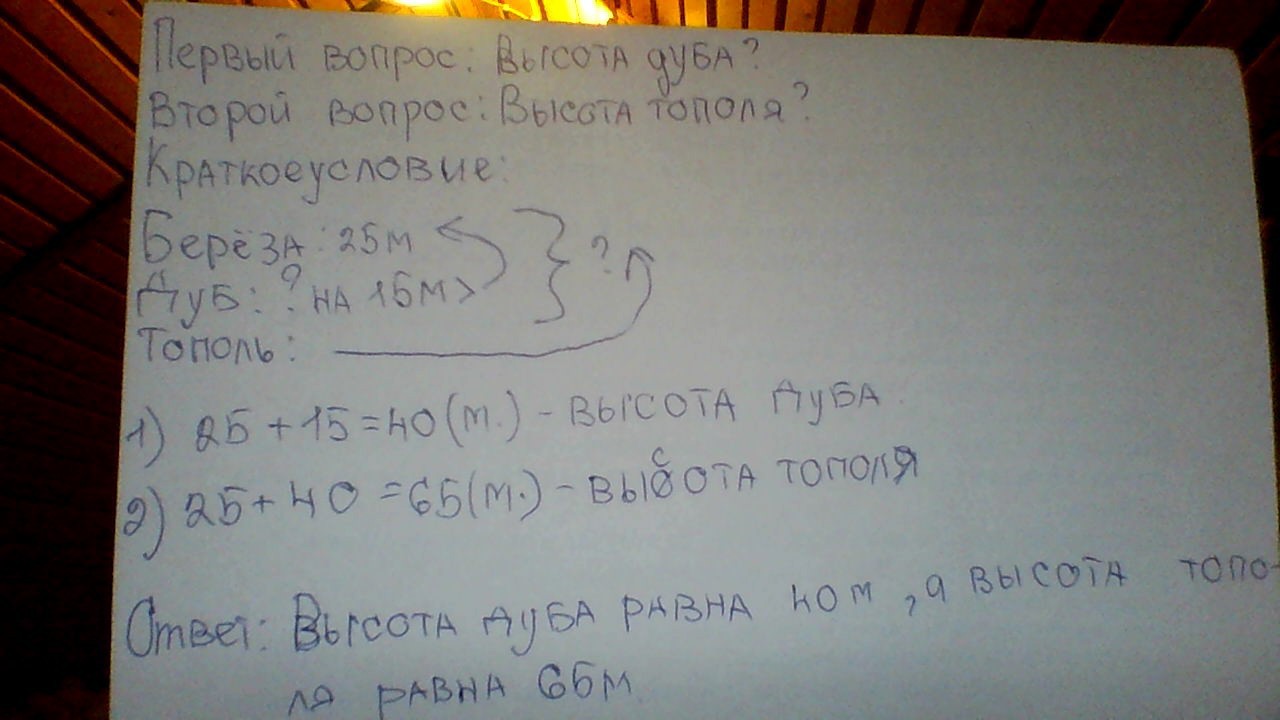 Первый вопрос: Высота дуба?
Второй вопрос: Высота тополя?
Краткоеусловие:
Берёза: 25м } ?
Дуб: ? на 15м >
Тополь:
1) 25 + 15 = 40 (м.) - высота дуба.
2) 25 + 40 = 65 (м.) - высота тополя
Ответ: Высота дуба равна 40 м, а высота топо-
ля равна 65м